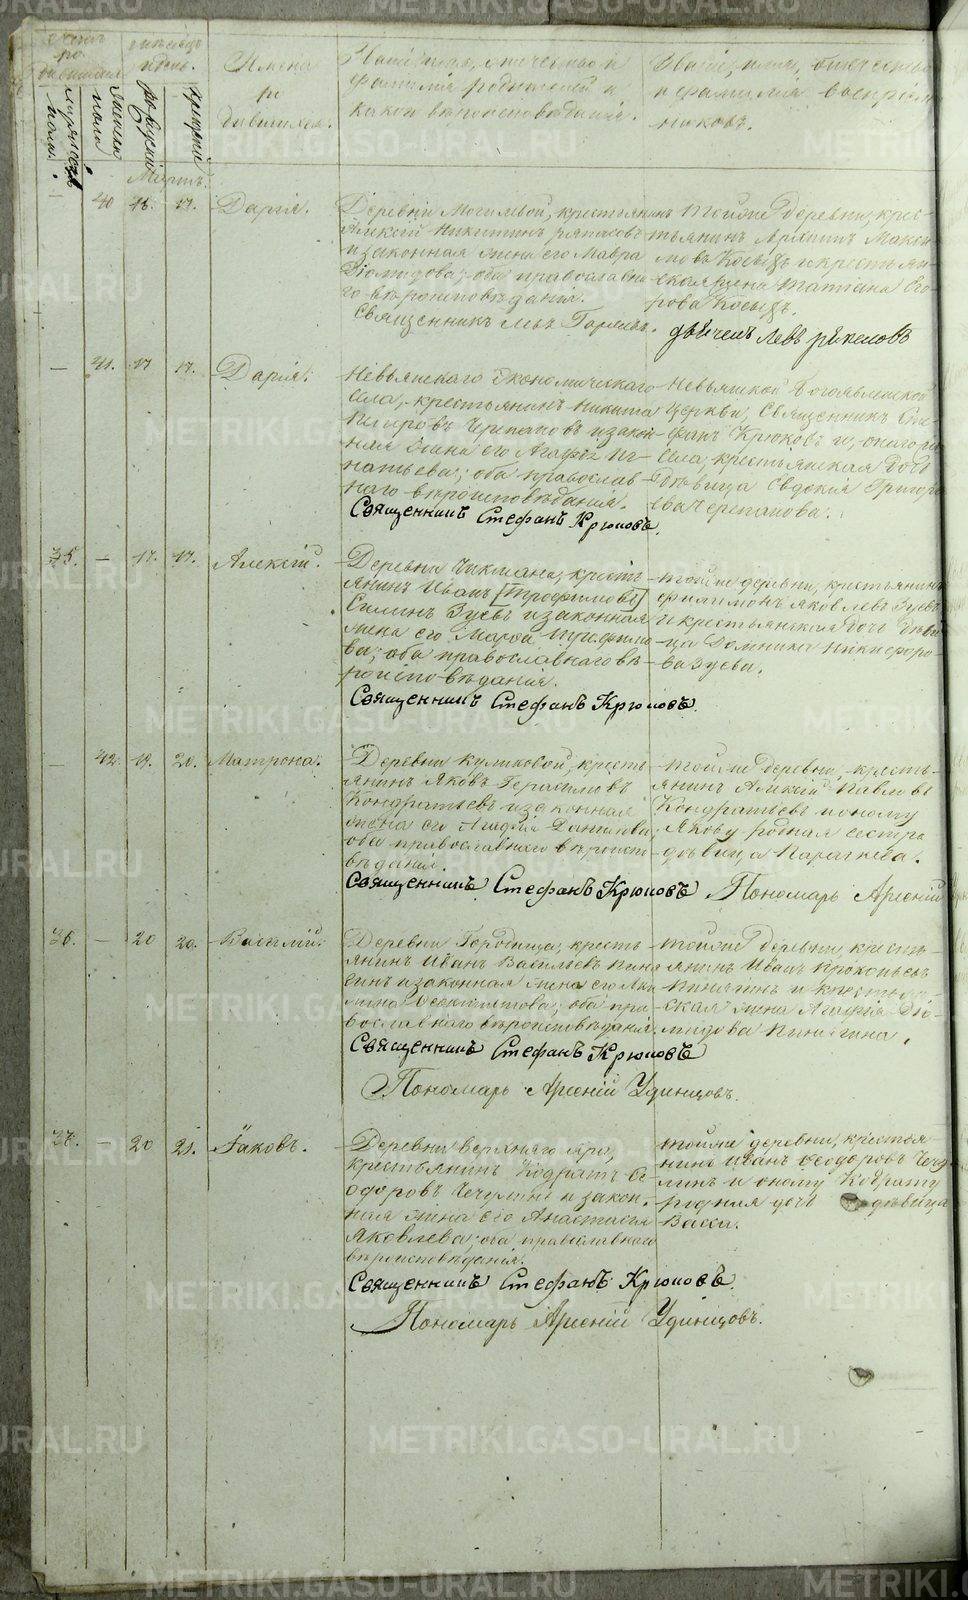 METRIKI.GASO-URAL.RU
Счетъ родившихся
мужеска пола.
женска пола
Мѣсяцъ и день.
рожденія
крещенія
Имена родившихся.
Званіе, имя, отчество и
фамилія родителей и
какого вѣроисповѣданія.
Званіе, имя, отчество
и фамилія воспріем-
никовъ.
Мартъ.
— 40 16. 17. Дарія.
Деревни Могилевой, крестьянинъ
Алексій Никитинъ
и законная жена его Мавра
Діомидова; оба православна-
го вѣроисповѣданія.
Священникъ Левъ
тойже деревни, крес-
тьянинъ Архипъ Макси-
мовъ и крестьян-
ская жена Татіана Его-
рова
— 41. 17 17. Дарія.
Невьянскаго Экономическаго
села, крестьянинъ Никита
Черепановъ и закон-
ная жена его Агафія Иг-
натьева; оба православ-
наго вѣроисповѣданія.
Священникъ Стефанъ Крюковъ.
Невьянской Богоявленской
Церкви, Священникъ Сте-
фанъ Крюковъ и, онаго же
села, крестьянская дочь
дѣвица Евдокія Григорь-
ева Черепанова.
35. — 17. 17. Алексій.
Деревни Чикмана, кресть-
янинъ Иванъ [Трофимовъ]
Силинъ Зуевъ и законная
жена его Марфа Трифило-
ва; оба православнаго вѣ-
роисповѣданія.
Священникъ Стефанъ Крюковъ.
тойже деревни, крестьянинъ
Филимонъ Яковлевъ Зуевъ
и крестьянская дочь дѣви-
ца Домника Никифоро-
ва Зуева.
— 42. 19. 20. Матрона.
Деревни Куликовой, кресть-
янинъ Яковъ Герасимовъ
Кондратьевъ и законная
жена его Агафія Данилова;
оба православнаго вѣроиспо-
вѣданія.
Священникъ Стефанъ Крюковъ
тойже деревни, кресть-
янинъ Алексій Павловъ
Кондратьевъ и оному
Якову родная сестра
дѣвица Параскева.
Пономарь Арсеній
36. — 20 20. Василій.
Деревни Городища, кресть-
янинъ Иванъ Васильевъ Пиня-
гинъ и законная жена его
оба пра-
вославнаго вѣроисповѣданія.
Священникъ Стефанъ Крюковъ
Пономарь Арсеній Удинцовъ.
тойже деревни, кресть-
янинъ Иванъ Прокопьевъ
Пинягинъ и крестьян-
ская жена Агафія Діо-
мидова Пинягина.
37. — 20 21. Іаковъ.
Деревни Верхняго яра,
крестьянинъ Кодратъ Ѳе-
одоровъ Чечулинъ и закон-
ная жена его Анастасія
Яковлева; оба православнаго
вѣроисповѣданія.
Священникъ Стефанъ Крюковъ.
Пономарь Арсеній Удинцовъ.
тойже деревни, крестья-
нинъ Иванъ Ѳеодоровъ Чечу-
линъ и оному Кодрату
родная дочь дѣвица
Васса.